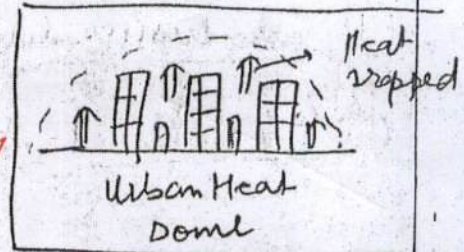 Heat
trapped
Urban Heat
Dome